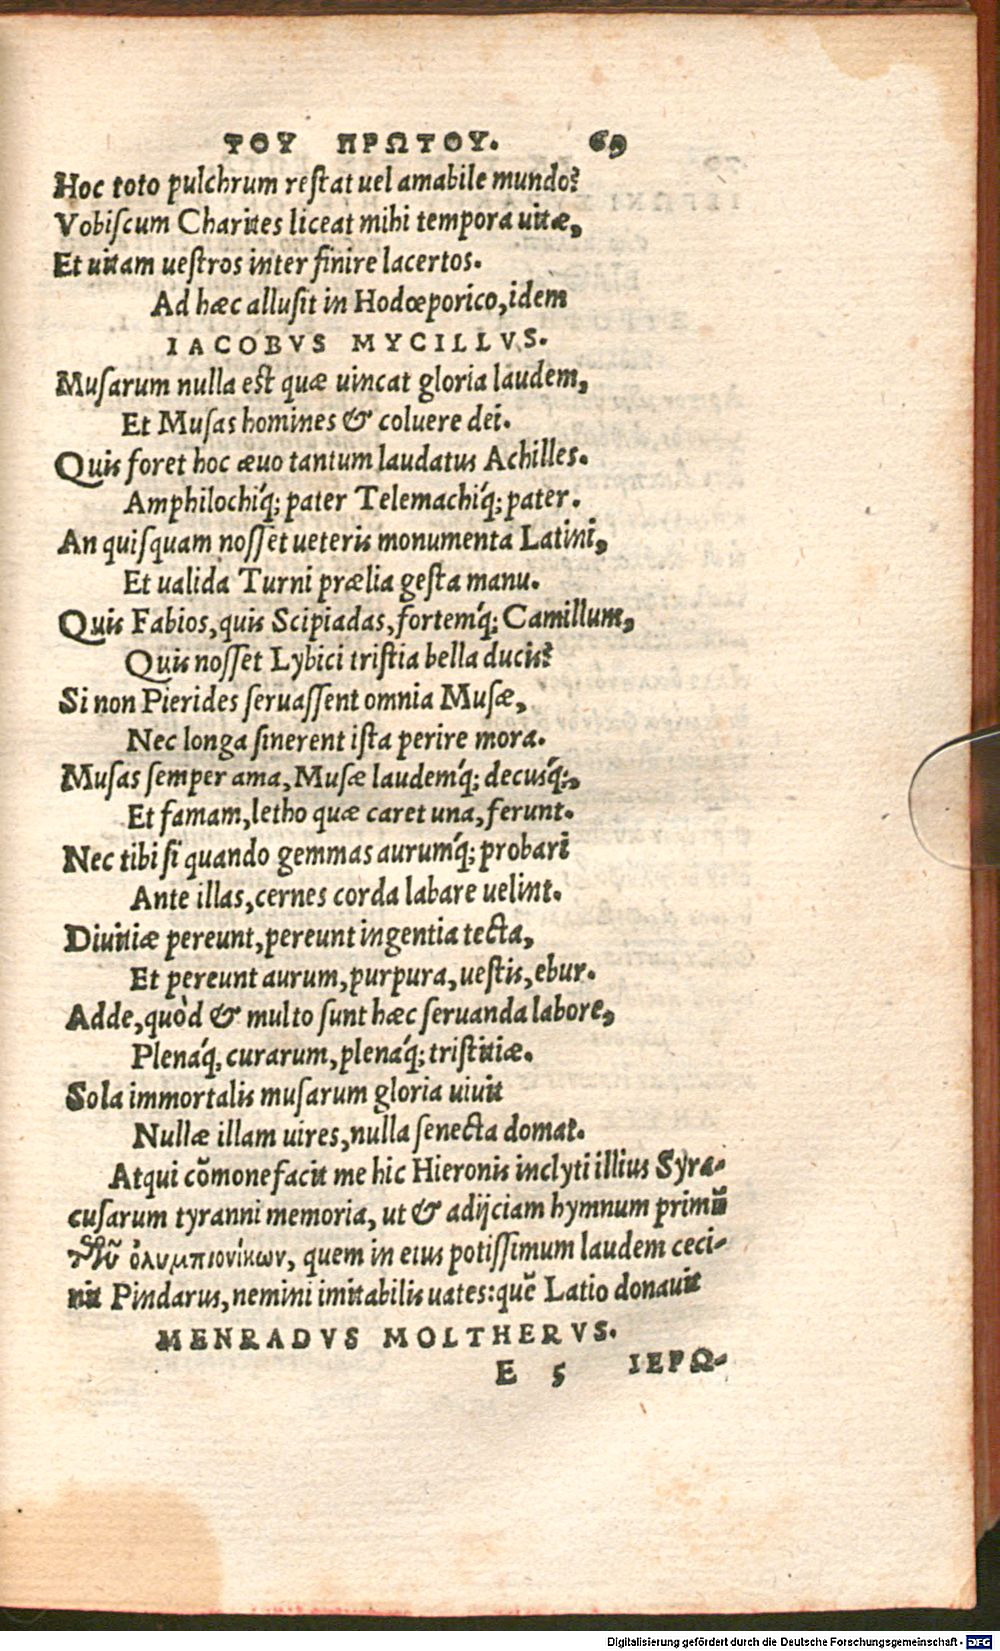 ΤΟΥ ΠΡΩΤΟΥ. 69
Hoc toto pulchrum reſtat uel amabile mundo?
Vobiſcum Charites liceat mihi tempora uitæ,
Et uitam ueſtros inter finire lacertos.
Ad hæc alluſit in Hodœporico, idem
IACOBVS MYCILLVS.
Muſarum nulla est quæ uincat gloria laudem,
Et Muſas homines & coluere dei.
Quis foret hoc æuo tantum laudatus Achilles.
Amphilochíq; pater Telemachíq; pater.
An quiſquam noſſet ueteris monumenta Latini,
Et ualida Turni prælia geſta manu.
Quis Fabios, quis Scipiadas, fortemq́; Camillum,
Quis noſſet Lybici triſtia bella ducis?
Si non Pierides ſeruaſſent omnia Muſæ,
Nec longa ſinerent iſta perire mora.
Muſas ſemper ama, Muſæ laudemq́; decusq́;,
Et famam, letho quæ caret una, ferunt.
Nec tibi ſi quando gemmas aurumq́; probari
Ante illas, cernes corda labare uelint.
Diuitiæ pereunt, pereunt ingentia tecta,
Et pereunt aurum, purpura, ueſtis, ebur.
Adde, quòd & multo ſunt hæc ſeruanda labore,
Plenáq, curarum, plenáq; triſtitiæ.
Sola immortalis muſarum gloria uiuit
Nullæ illam uires, nulla ſenecta domat.
Atqui cõmonefacit me hic Hieronis inclyti illius Syra-
cuſarum tyranni memoria, ut & adijciam hymnum primũ
τῶν ὀλυμπιονίκων, quem in eius potiſſimum laudem ceci-
nit Pindarus, nemini imitabilis uates: quẽ Latio donauit
MENRADVS MOLTHERVS.
E 5 ΙΕΡΩ-
Digitalisierung gefördert durch die Deutsche Forschungsgemeinschaft - DFG